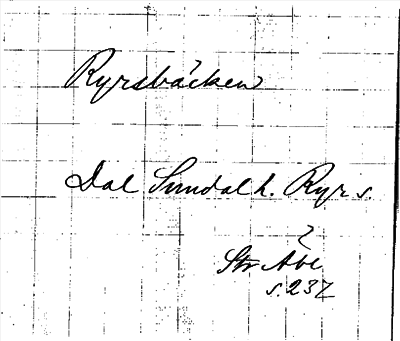 Ryrsbäcken
Dal Sundal h. Ryr s.
?
Str Åbe
s. 237